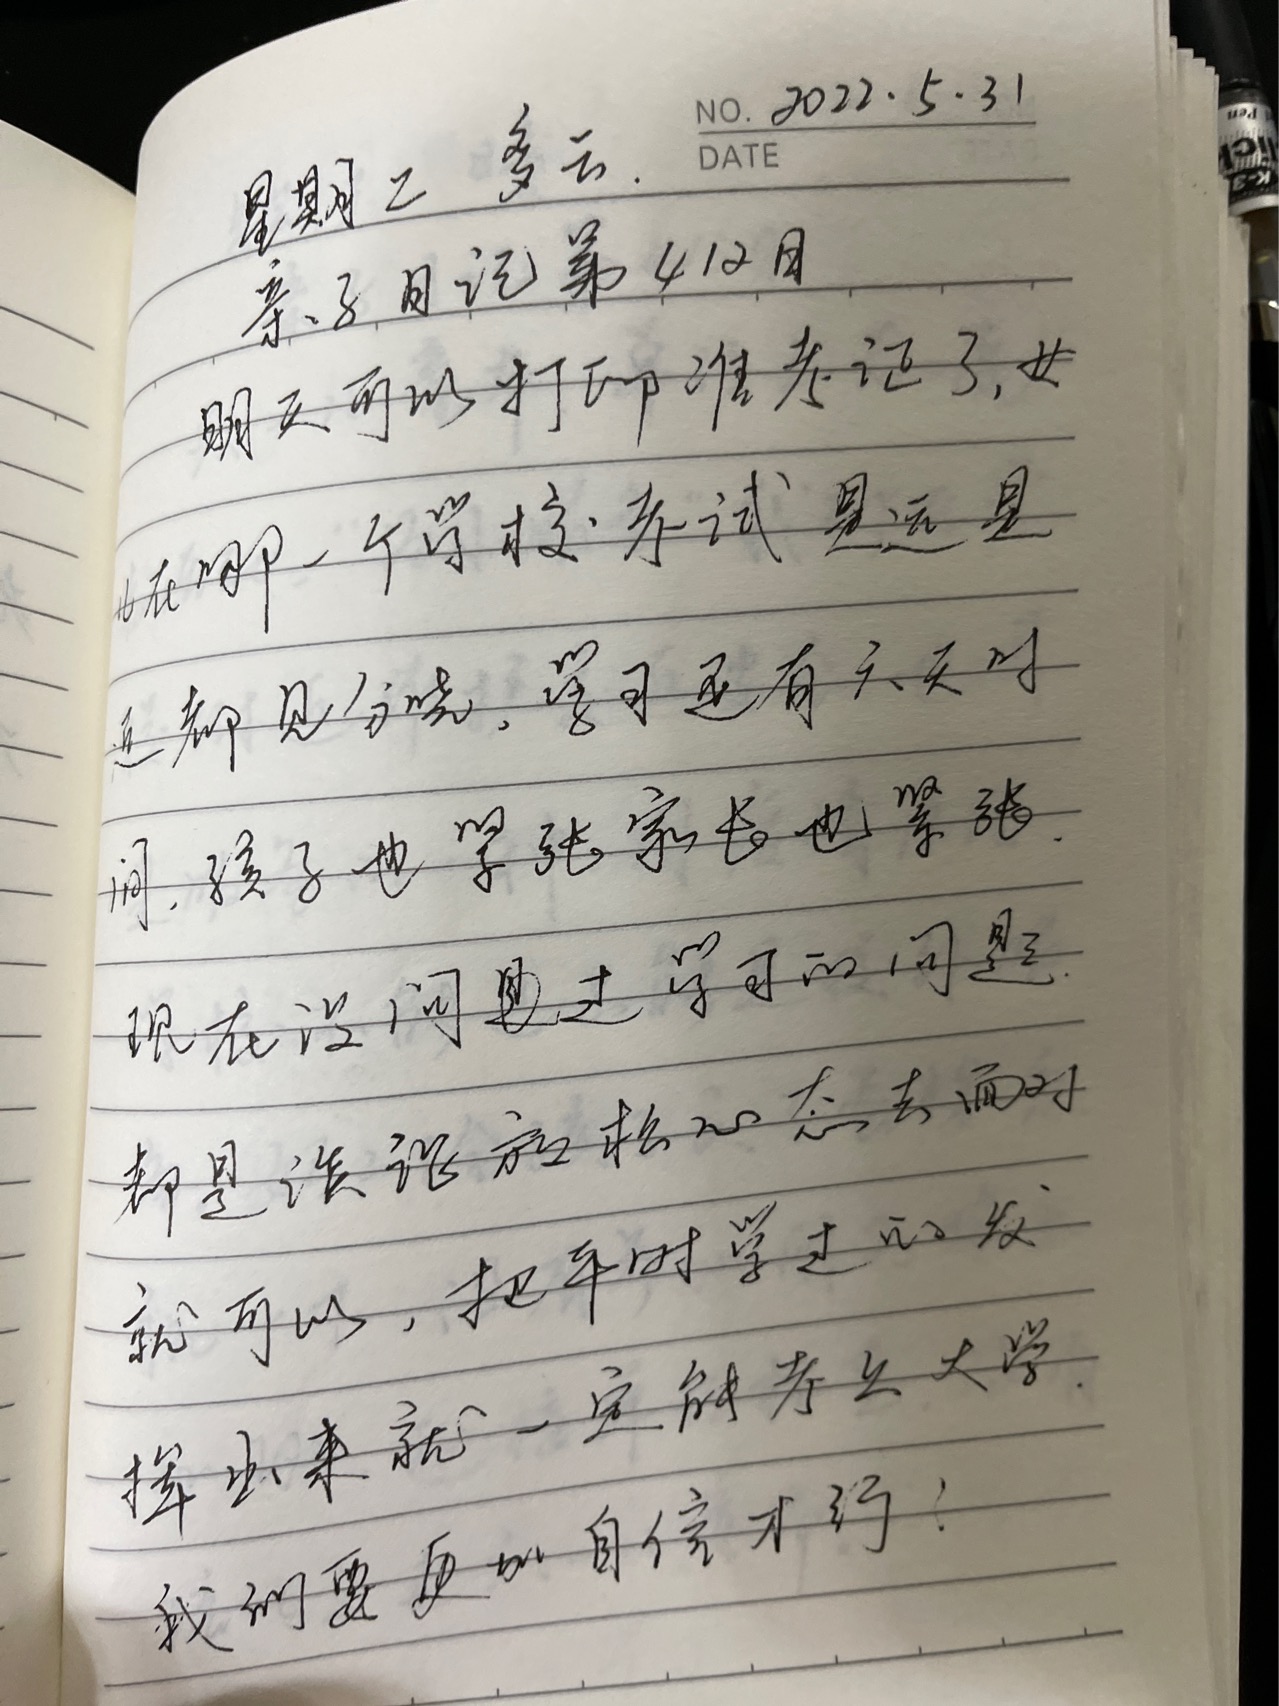 NO. 2022.5.31
DATE
星期二 多云.
亲子日记第412日
明天可以打印准考证了,女
儿在哪一个学校考试是远是
近都见分晓,学习还有六天时
间,孩子也紧张家长也紧张.
现在没问过学习的问题.
都是谈谈放松心态去面对
就可以,把平时学过的发
挥出来就一定能考上大学.
我们要更加自信才行!